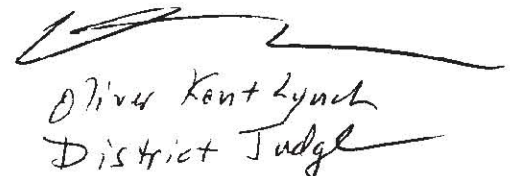 Oliver Kent Lynch
District Judge